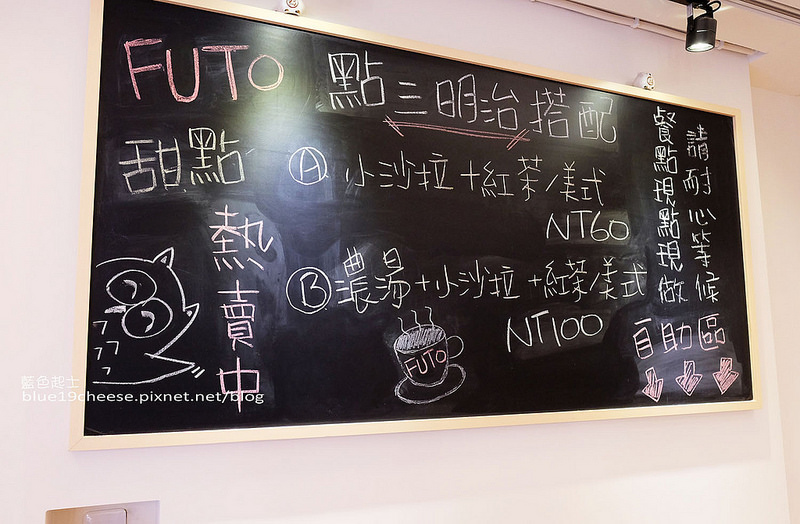 FUTO
甜點
熱賣中
點三明治搭配
Ⓐ 小沙拉+紅茶/美式
NT60
Ⓑ 濃湯+小沙拉+紅茶/美式
NT100
FUTO
請耐心等候
餐點現點現做
自助區
藍色起士
blue19cheese.pixnet.net/blog